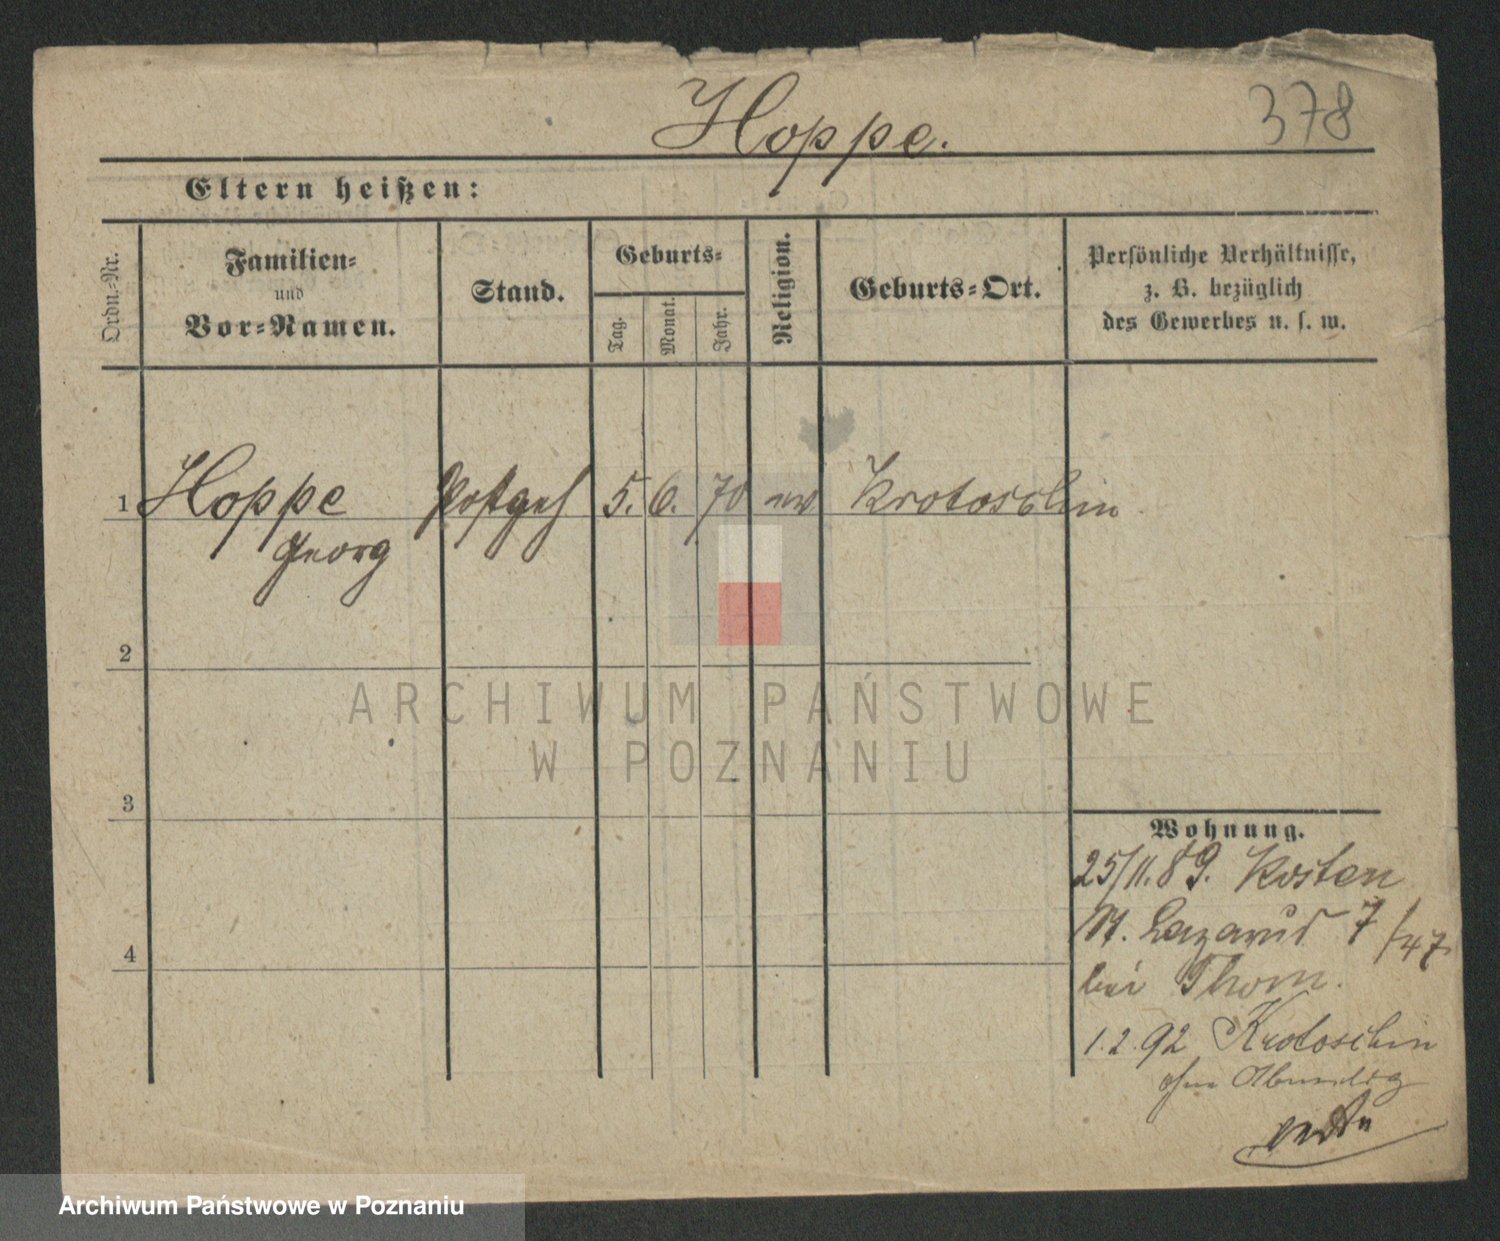 Hoppe.
378
Eltern heißen:
Ordn.-Nr.
Familien-
und
Vor-Namen.
Stand.
Geburts-
Tag.
Monat.
Jahr.
Religion.
Geburts-Ort.
Persönliche Verhältnisse,
z. B. bezüglich
des Gewerbes u. s. w.
1 Hoppe Postgeh 5. 6. 70 ev Krotoschin
Georg
2
ARCHIWUM PAŃSTWOWE
W POZNANIU
3
Wohnung.
25/11.89. Kosten
St. Lazarus 7/47
bei Thom.
4
1.2.92 Krotoschin
ohne Abmeldg
Archiwum Państwowe w Poznaniu